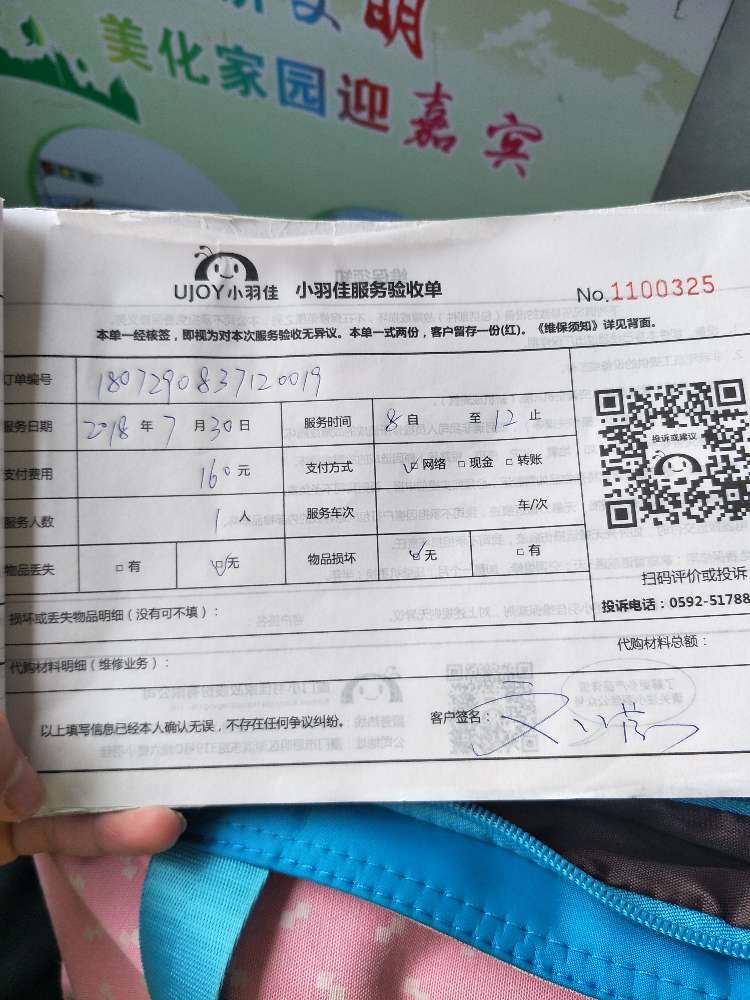 文明
美化家园迎嘉宾
UJOY小羽佳 小羽佳服务验收单 No.1100325
本单一经核签，即视为对本次服务验收无异议。本单一式两份，客户留存一份(红)。《维保须知》详见背面。
订单编号 1807290837120019
服务日期 2018年7月30日 服务时间 8自 至12止
支付费用 160元 支付方式 ☑网络 □现金 □转账
服务人数 1人 服务车次 车/次
物品丢失 □有 ☑无 物品损坏 ☑无 □有
投诉或建议
扫码评价或投诉
投诉电话：0592-51788
损坏或丢失物品明细（没有可不填）：
代购材料明细（维修业务）： 代购材料总额：
以上填写信息已经本人确认无误，不存在任何争议纠纷。 客户签名：